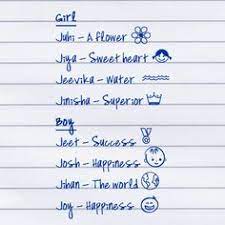 Girl
Juhi - A flower
Jiya - Sweet heart
Jeevika - Water
Jinisha - Superior
Boy
Jeet - Success
Josh - Happiness
Jihan - The world
Joy - Happiness